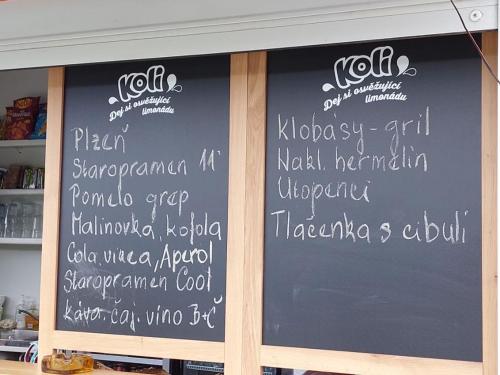 Koli
Dej si osvěžující
limonádu
Plzeň
Staropramen 11°
Pomelo grep
Malinovka, kofola
Cola, vinea, Aperol
Staropramen Cool
káva. čaj. víno B+Č
Koli
Dej si osvěžující
limonádu
Klobásy - gril
Nakl. hermelín
Utopenci
Tlačenka s cibulí